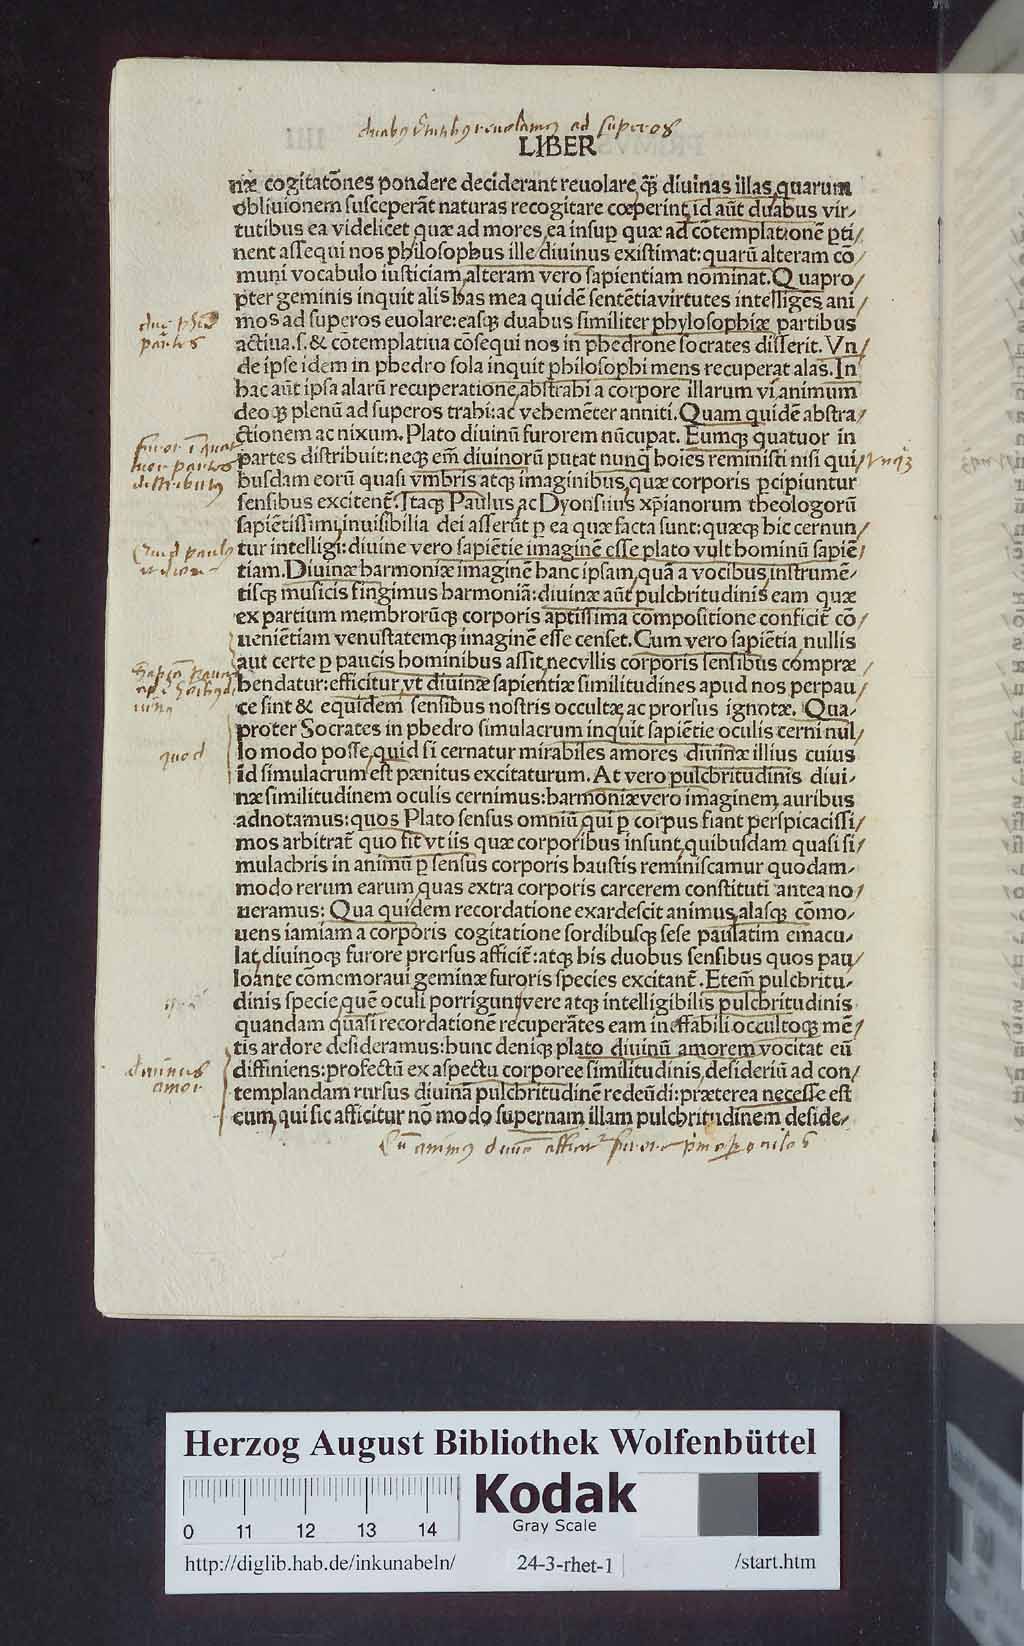 ad superos
LIBER
næ cogitatōnes pondere deciderant reuolare, q̄ꝫ diuinas illas quarum
obliuionem susceperāt naturas recogitare cœperint, id aūt duabus vir/
tutibus ea videlicet quæ ad mores, ea insuꝑ quæ ad cōtemplationē ꝑti/
nent assequi nos philosophus ille diuinus existimat: quarū alteram cō/
muni vocabulo iusticiam, alteram vero sapientiam nominat. Quapro/
pter geminis inquit alis has mea quidē sentētia virtutes intelliges, ani/
due
partes
mos ad superos euolare: easqꝫ duabus similiter phylosophiæ partibus
actiua.s. & cōtemplatiua cōsequi nos in phedrone socrates disserit. Vn/
de ipse idem in phedro sola inquit philosophi mens recuperat alas. In
hac aūt ipsa alarū recuperatione, abstrahi a corpore illarum vi animum
deoqꝫ plenū ad superos trahi: ac vehemēter anniti. Quam quidē abstra/
ctionem ac nixum. Plato diuinū furorem nūcupat. Eumqꝫ quatuor in
furor ī quat
tuor partes
distributus
partes distribuit: neqꝫ em̄ diuinorū putat nunq̄ hoies reministi nisi qui/
busdam eorū quasi vmbris atqꝫ imaginibus, quæ corporis ꝑcipiuntur
sensibus excitent̄. Itaqꝫ Paulus, ac Dyonsiius xp̄ianorum theologorū
sapiētissimi, inuisibilia dei asserūt ꝑ ea quæ facta sunt: quæqꝫ hic cernun/
Quid paulus
tur intelligi: diuine vero sapiētie imaginē esse plato vult hominū sapiē/
tiam. Diuinæ harmoniæ imaginē hanc ipsam, quā a vocibus, instrumē/
tisqꝫ musicis fingimus harmoniā: diuinæ aūt pulchritudinis eam quæ
ex partium membrorūqꝫ corporis aptissima compositione conficit̄ cō/
ueniētiam venustatemqꝫ imaginē esse censet. Cum vero sapiētia, nullis
aut certe ꝑ paucis hominibus assit, nec vllis corporis sensibus compræ/
hendatur: efficitur, vt diuinæ sapientiæ similitudines apud nos perpau/
ce sint & equidem sensibus nostris occultæ, ac prorsus ignotæ. Qua
proter Socrates in phedro simulacrum inquit sapiētie oculis cerni nul/
quod
lo modo posse, quid si cernatur mirabiles amores diuinæ illius cuius
id simulacrum est pænitus excitaturum. At vero pulchritudinis diui/
næ similitudinem oculis cernimus: harmoniæ vero imaginem, auribus
adnotamus: quos Plato sensus omniū qui ꝑ corpus fiant perspicacissi/
mos arbitrat̄ quo fit vt iis quæ corporibus insunt, quibusdam quasi si/
mulachris in animū ꝑ sensus corporis haustis reminiscamur quodam/
modo rerum earum, quas extra corporis carcerem constituti antea no/
ueramus: Qua quidem recordatione exardescit animus, alasqꝫ cōmo/
uens iamiam a corporis cogitatione sordibusqꝫ sese paulatim emacu/
lat, diuinoqꝫ furore prorsus afficit̄: atqꝫ his duobus sensibus quos pau/
loante cōmemoraui geminæ furoris species excitant̄. Etem̄ pulchritu/
dinis specie, quē oculi porrigunt, vere atqꝫ intelligibilis pulchritudinis
quandam quasi recordationē recuperātes eam ineffabili occultoqꝫ mē/
tis ardore desideramus: hunc deniqꝫ plato diuinū amorem vocitat eū
diuinus
amor
diffiniens: profectū ex aspectu corporee similitudinis, desideriū ad con/
templandam rursus diuinā pulchritudinē redeūdi: præterea necesse est
eum, qui sic afficitur nō modo supernam illam pulchritudinem deside/
Herzog August Bibliothek Wolfenbüttel
Kodak
Gray Scale
0 11 12 13 14
http://diglib.hab.de/inkunabeln/ 24-3-rhet-1 /start.htm